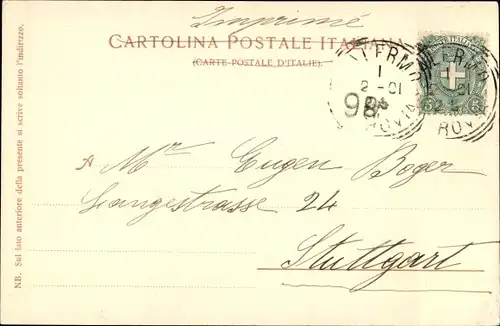 Imprimé
CARTOLINA POSTALE ITALIANA
(CARTE POSTALE D'ITALIE).
1
2 - 01
98
A Mr Eugen Boger
Langestrasse 24
Stuttgart
NB. Sul lato anteriore della presente si scrive soltanto l'indirizzo.